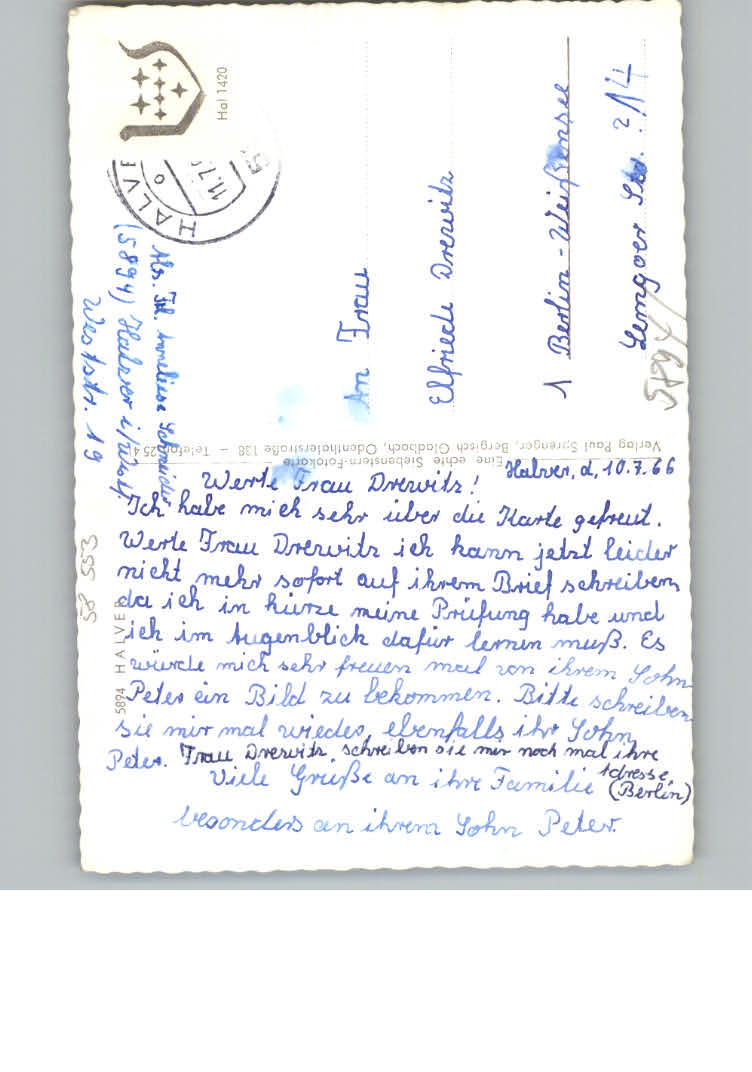 Hal 1420
HALVE
11.7.
Abs. Frl. Anneliese Schneider
(5894) Halver i/Westf.
Weststr. 19
An Frau
Elfriede Drewitz
1 Berlin-Weißensee
Lemgoer Str. ? 14
5894
Verlag Paul Sprenger, Bergisch Gladbach, Odenthalerstraße 138 – Telefon 25 4
Eine echte Siebenstern-Fotokarte
58 553
5894 HALVER
Halver, d, 10.7.66
Werte Frau Drewitz!
Ich habe mich sehr über die Karte gefreut.
Werte Frau Drewitz ich kann jetzt leider
nicht mehr sofort auf ihrem Brief schreiben,
da ich in kürze meine Prüfung habe und
ich im Augenblick dafür lernen muß. Es
würde mich sehr freuen mal von ihrem Sohn
Peter ein Bild zu bekommen. Bitte schreiben
sie mir mal wieder, ebenfalls ihr Sohn
Peter. Frau Drewitz, schreiben sie mir noch mal ihre
Adresse,
(Berlin)
Viele Grüße an ihre Familie
besonders an ihrem Sohn Peter.